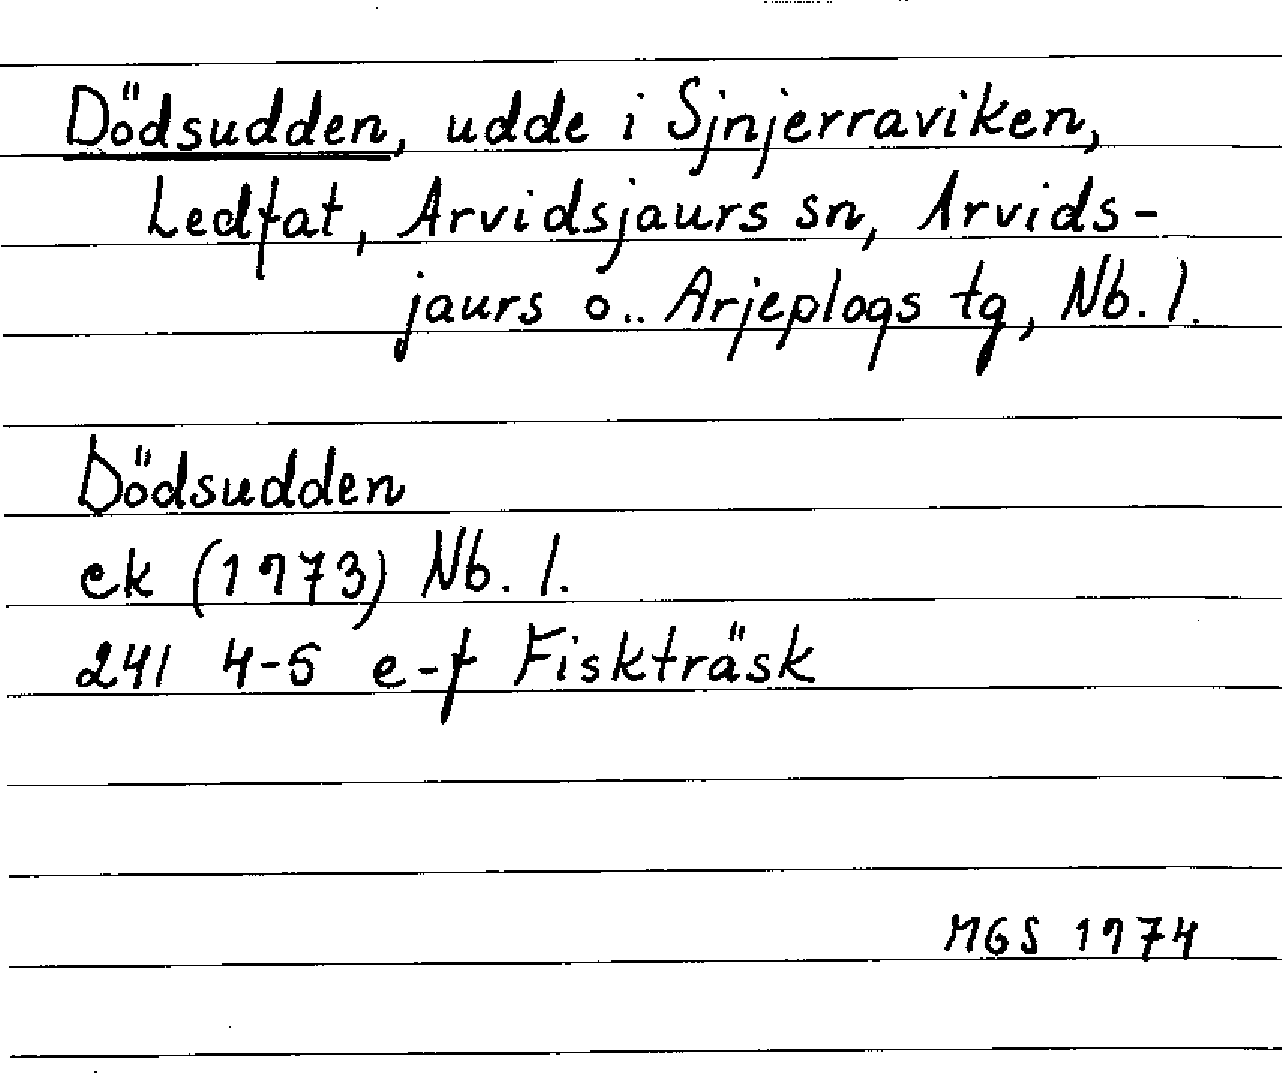 Dödsudden, udde i Sjnjerraviken,
Ledfat, Arvidsjaurs sn, Arvids-
jaurs o.. Arjeplogs tg, Nb. l.
Dödsudden
ek (1973) Nb. l.
241 4-5 e-f Fiskträsk
MGS 1974